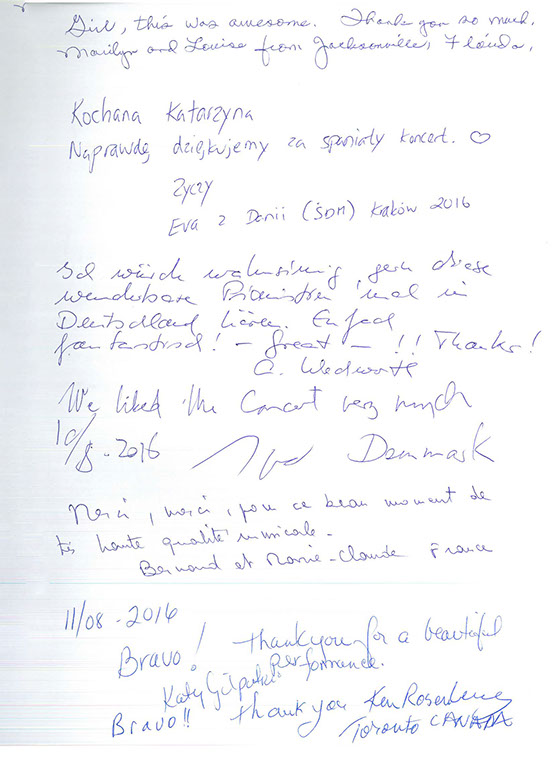 Girl, this was awesome. Thank you so much.
Marilyn and Louise from Jacksonville, Florida.
Kochana Katarzyna
Naprawdę dziękujemy za spaniały koncert. ♡
życzy
Eva z Danii (ŚDM) Kraków 2016
Ich würde wahnsinnig gern diese
wunderbare Pianistin mal in
Deutschland hören. Einfach
fantastisch! – Great – !! Thanks!
We liked the Concert very much
10/8-2016 Danmark
Merci, merci, pour ce beau moment de
très haute qualité musicale.
Bernard et Marie-Claude France
11/08-2016
Bravo! Thank you for a beautiful
performance.
Katy
Bravo!! Thank you Ken
Toronto CANADA